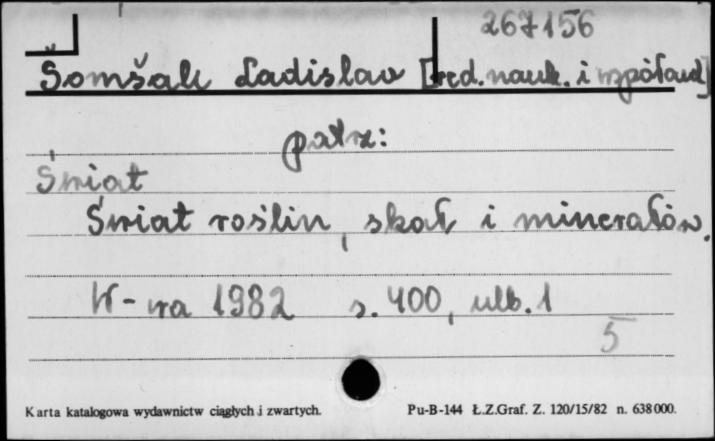 267156
Šomšak Ladislav [red. nauk. i współaut]
patrz:
Świat
Świat roślin, skał i minerałów.
W-wa 1982 s. 400, ulb. 1
5
Karta katalogowa wydawnictw ciągłych i zwartych.
Pu-B-144 Ł.Z.Graf. Z. 120/15/82 n. 638000.